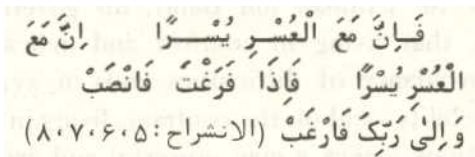 فَاِنَّ مَعَ الْعُسْرِ يُسْرًا اِنَّ مَعَ
الْعُسْرِ يُسْرًا فَاِذَا فَرَغْتَ فَانْصَبْ
وَ اِلٰى رَبِّكَ فَارْغَبْ (الانشراح: ۸،۷،۶،۵)